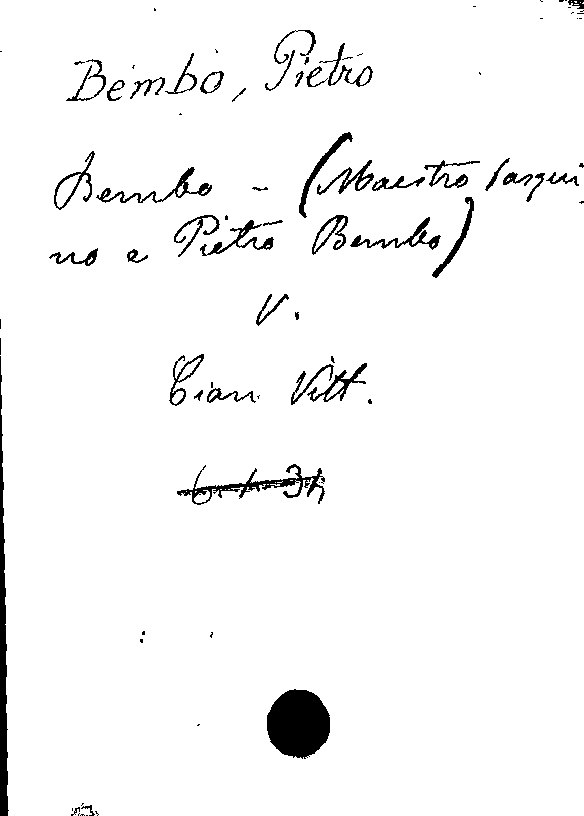 Bembo, Pietro
Bembo - (Maestro Pasqui
no e Pietro Bembo)
V.
Cian Vitt.